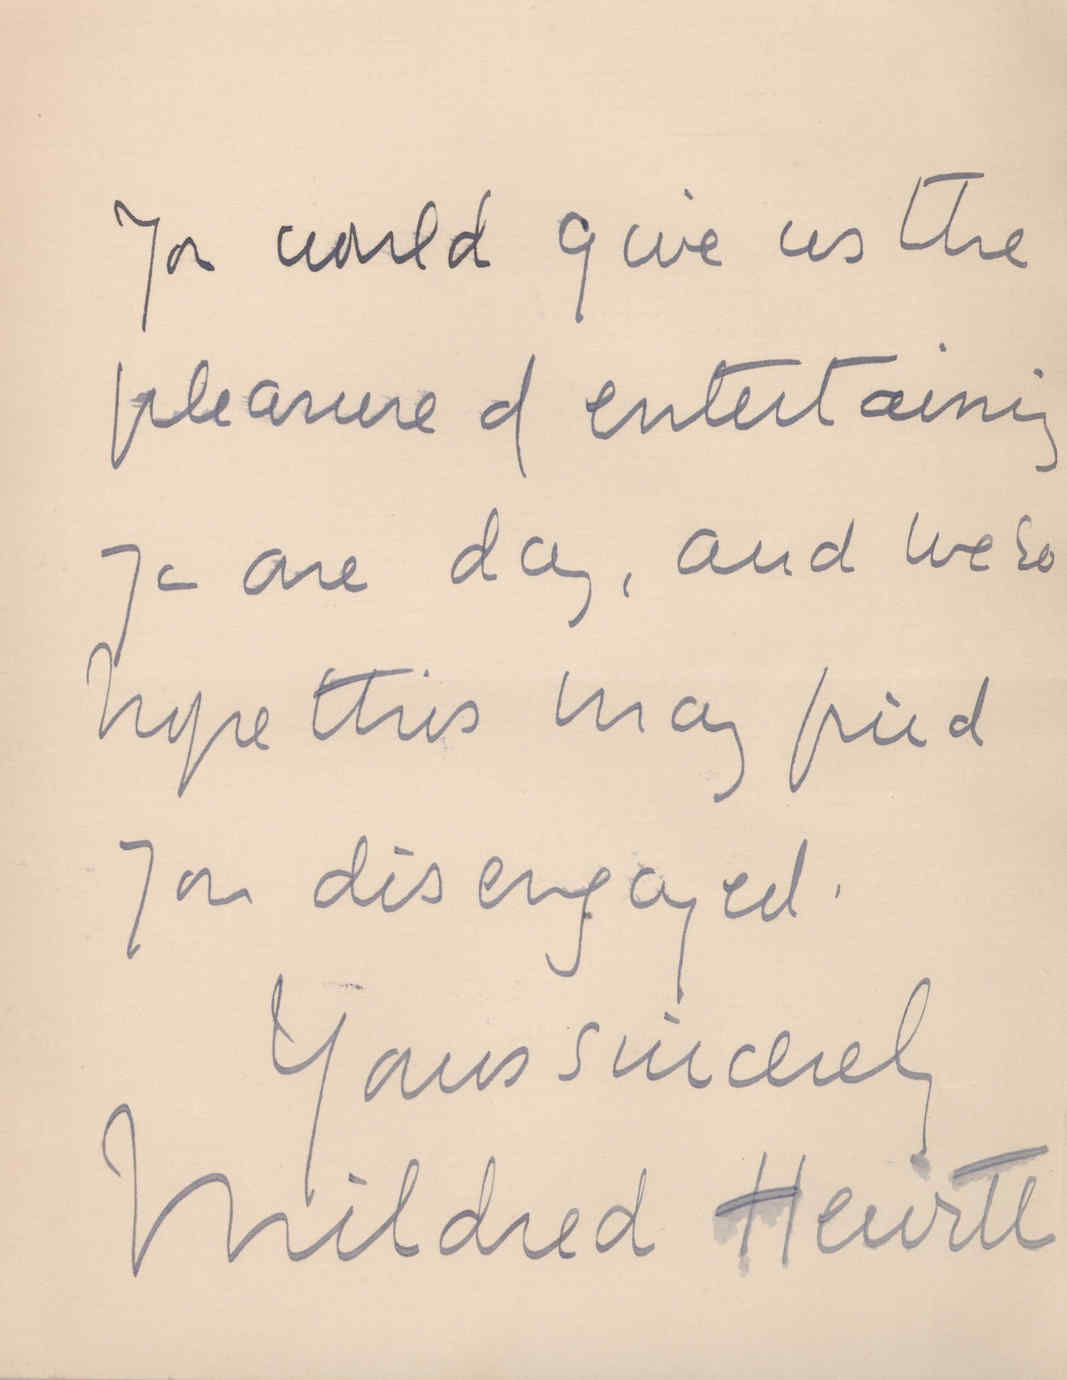 you would give us the
pleasure of entertaining
you one day, and we so
hope this may find
you disengaged.
Yours sincerely
Mildred Hewitt